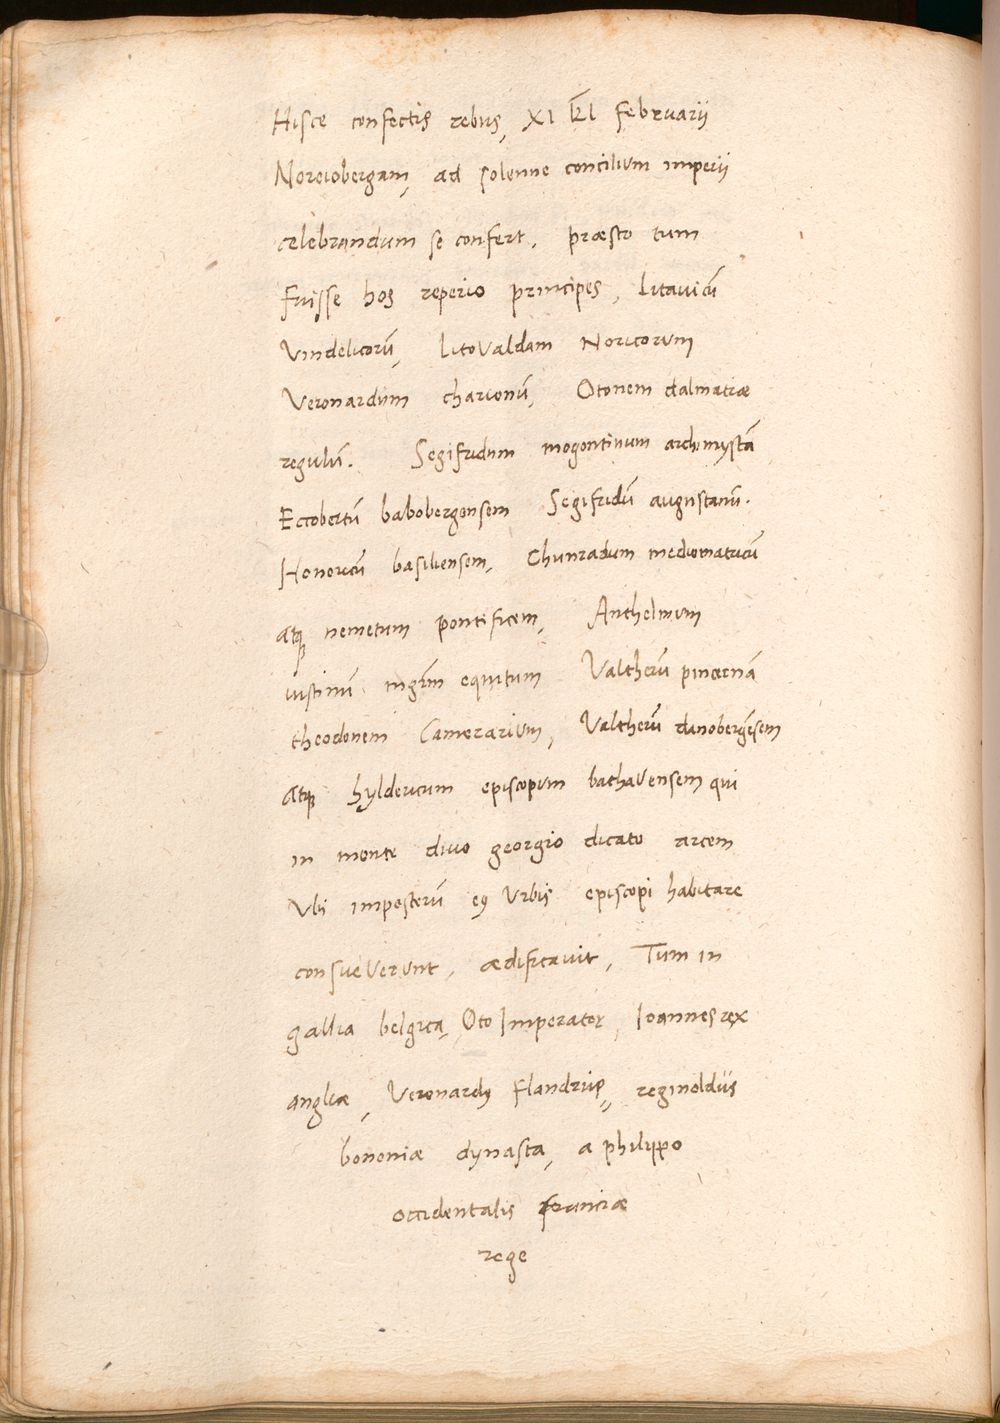 Hisce confectis rebus, XI kl̄ februarij
Noreiobergam, ad solenne concilium imperij
celebrandum se confert, præsto tum
fuisse hos reperio principes, Litauicū
Vindelicorū, LitoValdam Noricorum
Veronardum charionū, Otonem dalmatiæ
regulū. Segifridum mogontinum archimystā
Eccobertū babobergensem Segifridū augustanū.
Honoricū basiliensem, Chunradum mediomatricū
atqꝫ nemetum pontificem, Anthelmum
iustinū mgr̄m equitum Valtherū pincernā
theodonem Camerarium, Valtherū danobergēsem
atqꝫ hyldericum episcopum bathaVensem qui
in monte diuo georgio dicato arcem
Vbi imposterū eꝰ Vrbis episcopi habitare
consueVerunt, ædificauit, Tum in
gallia belgica, Oto Imperator, Ioannes rex
angliæ, Veronardꝰ Flandriæ, reginoldus
bononiæ dynasta, a philippo
occidentalis franciæ
rege